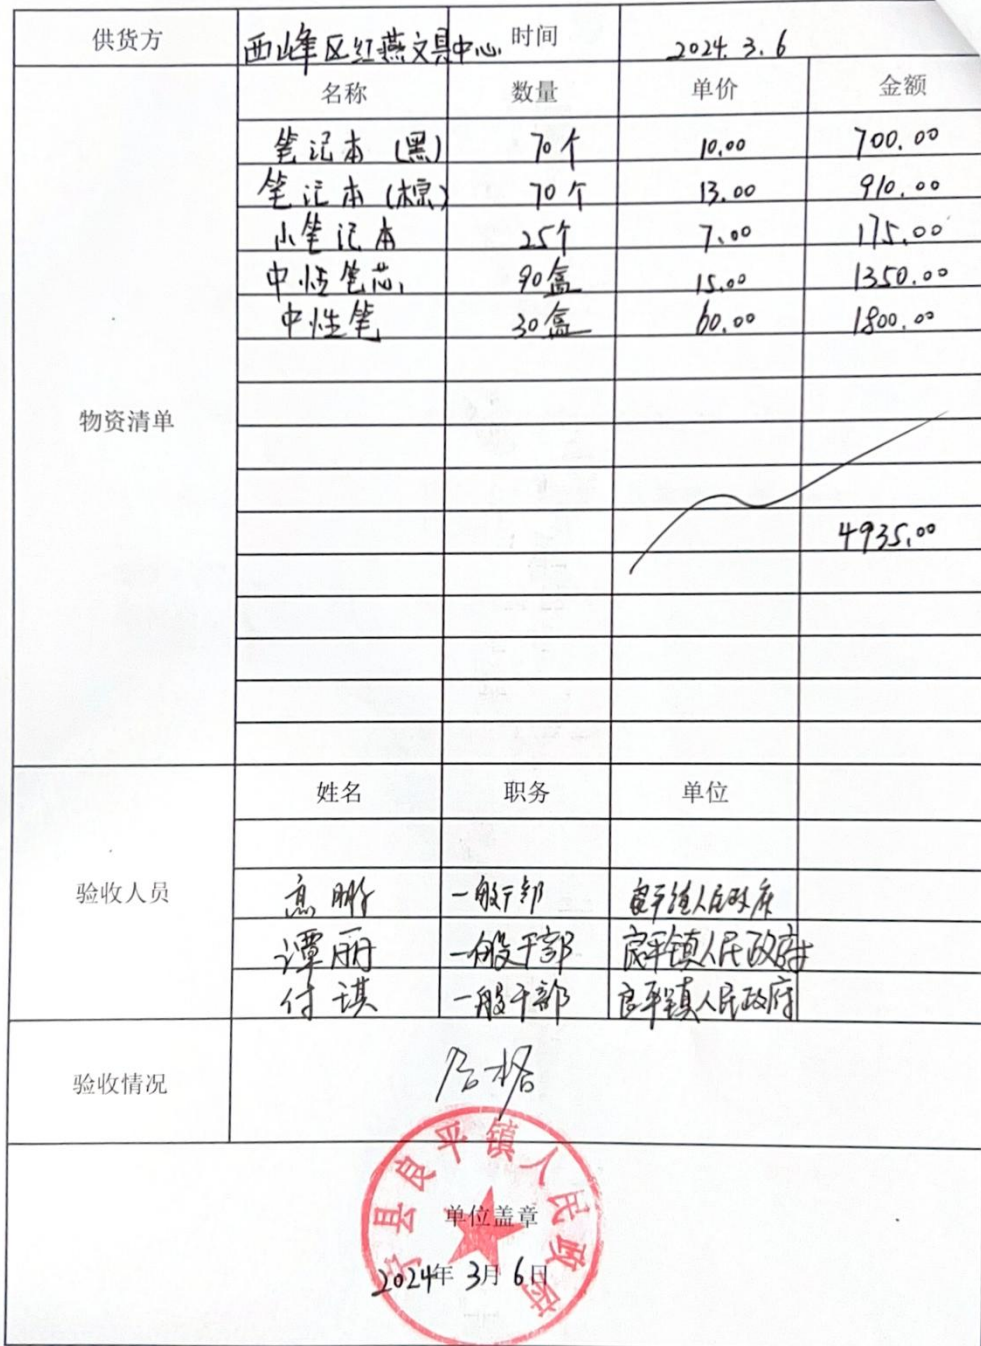 供货方 西峰区红燕文具中心 时间 2024.3.6
名称 数量 单价 金额
笔记本(黑) 70个 10.00 700.00
笔记本(棕) 70个 13.00 910.00
小笔记本 25个 7.00 175.00
中性笔芯 90盒 15.00 1350.00
中性笔 30盒 60.00 1800.00
物资清单
4935.00
姓名 职务 单位
验收人员
一般干部 良平镇人民政府
谭丽 一般干部 良平镇人民政府
付琪 一般干部 良平镇人民政府
验收情况 合格
宁县良平镇人民政府
单位盖章
2024年3月6日